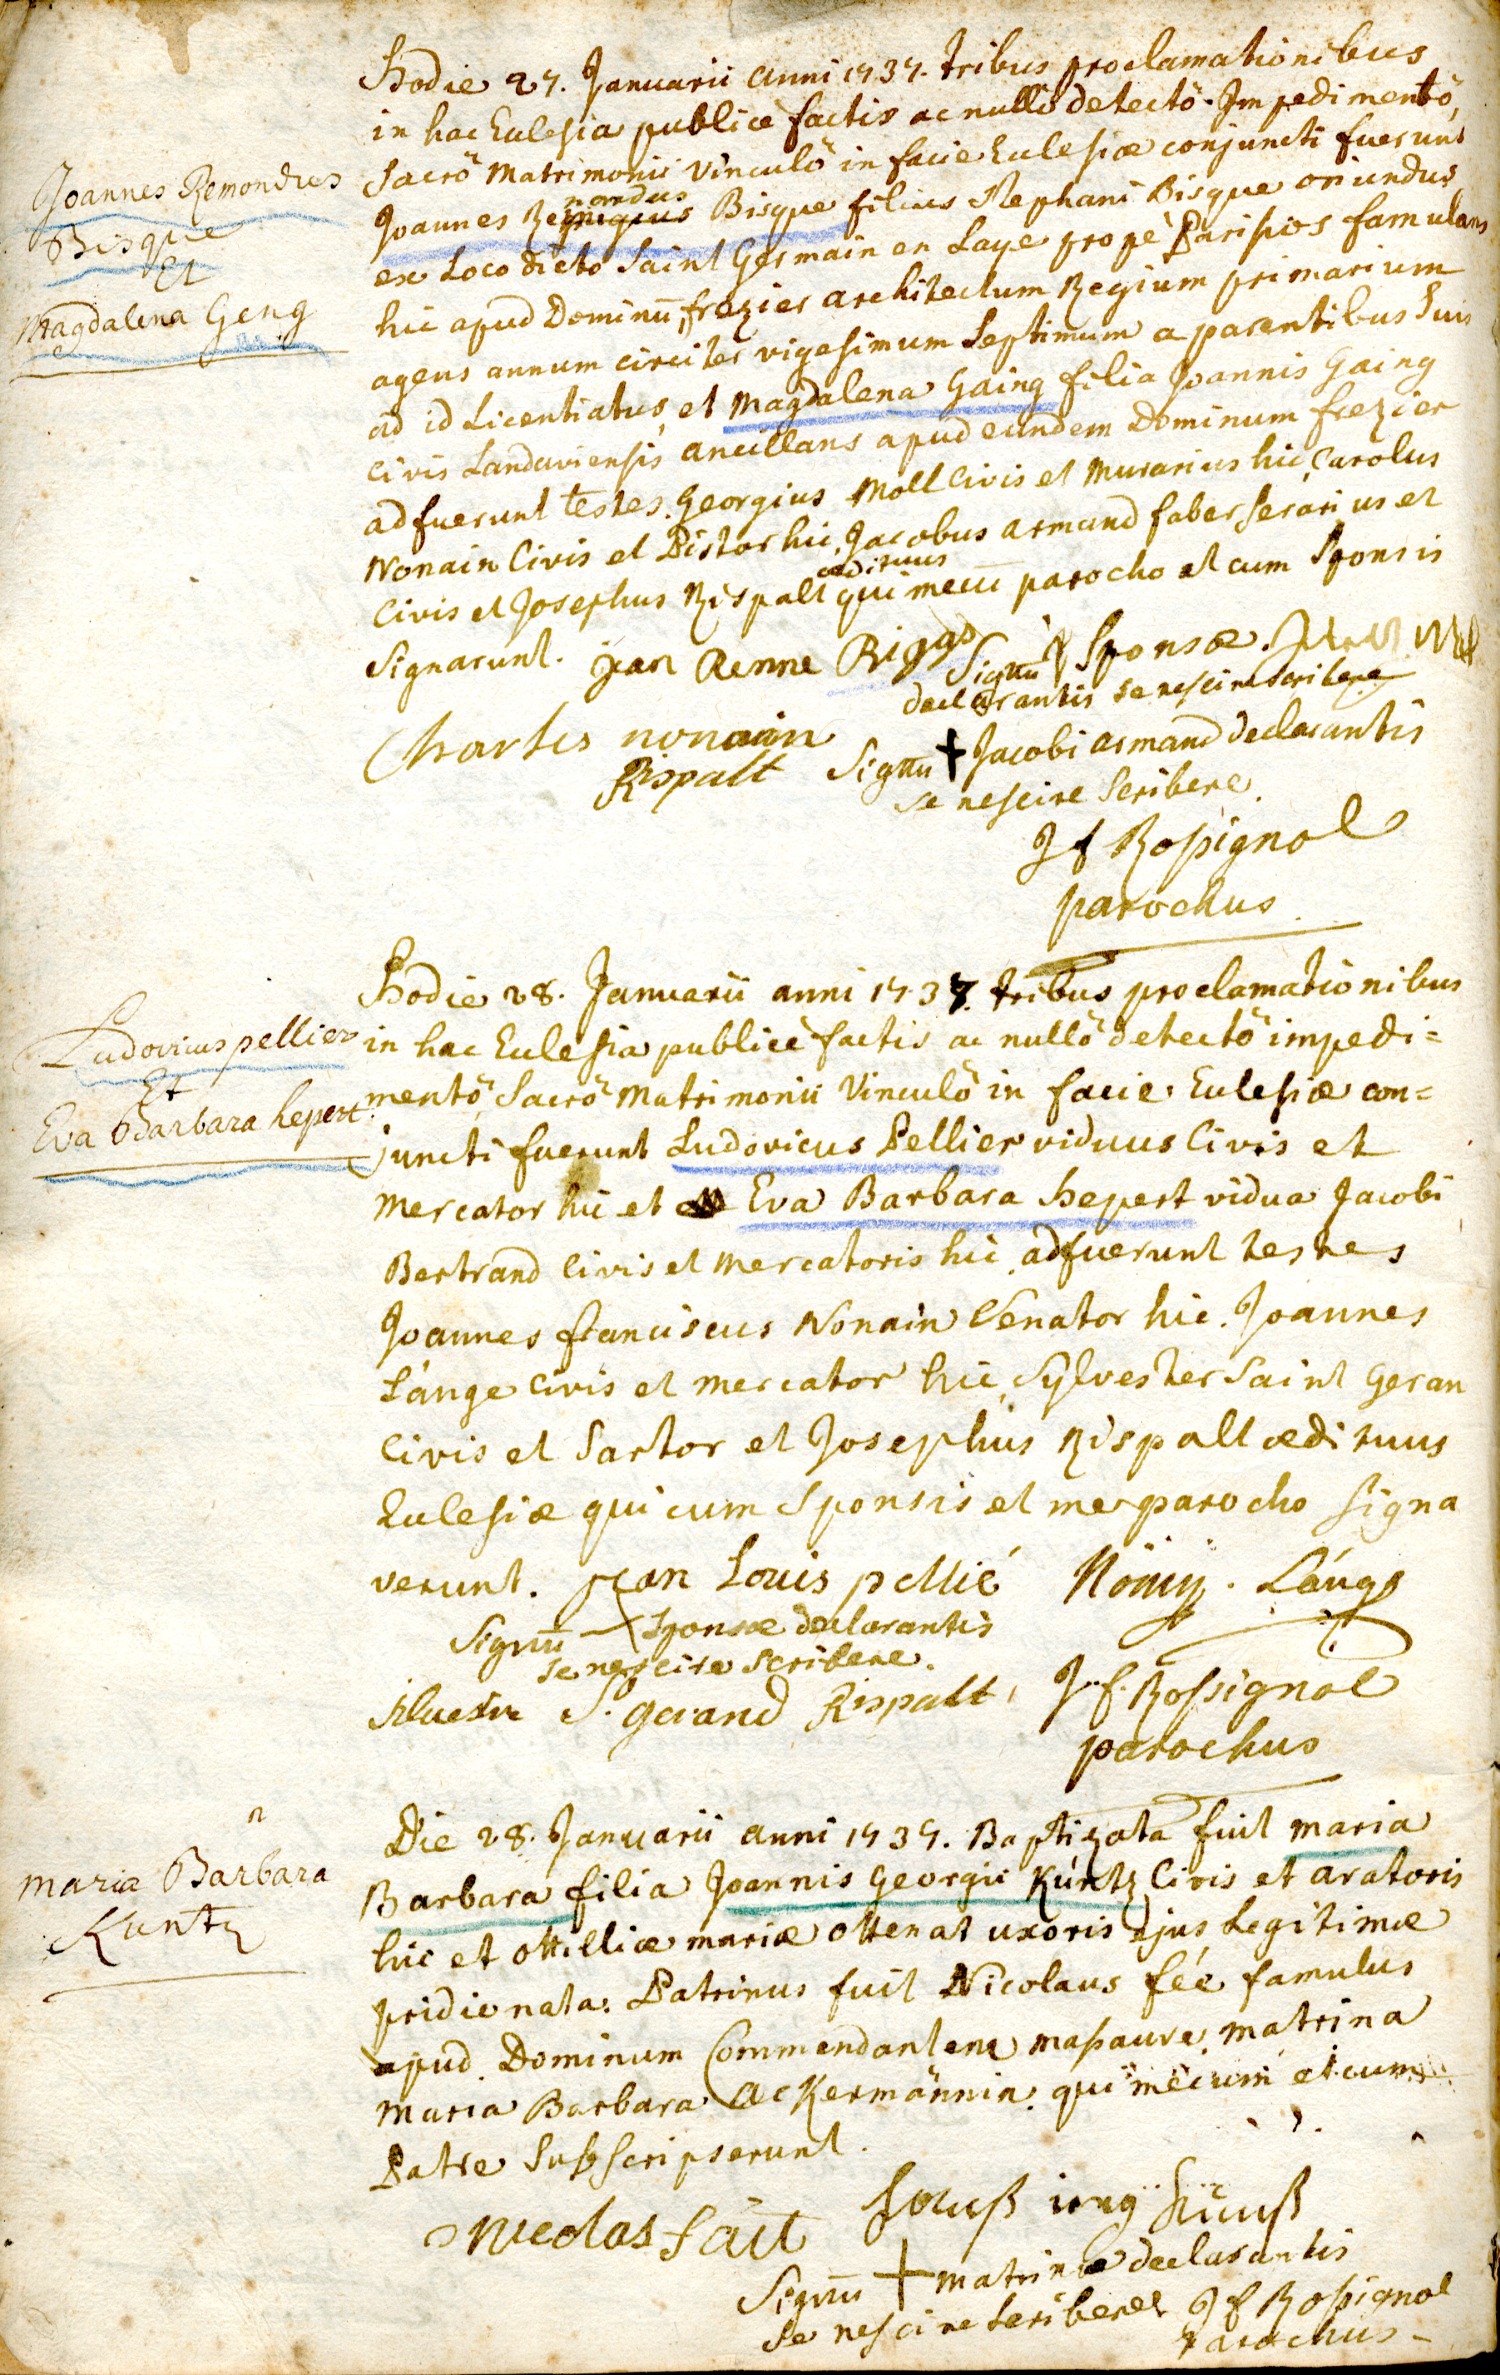 Hodie 27. Januarii anni 1737. tribus proclamationibus
in hac Eclesia publicè factis ac nullô detectô Impedimentô,
Joannes Remondus
Bisque
Et
Magdalena Geng
Sacrô Matrimonii Vinculô in facie Eclesiæ conjuncti fuerunt
nardus
Joannes Re Bisque filius Stephani Bisque oriundus
ex Loco dicto Saint Germain en Laye propè Parisios famulans
hic apud Dominū frezier architectum Regium primarium
agens annum circiter vigesimum Septimum a parentibus Suis
ad id Licentiatus, et Magdalena Gaing filia Joannis Gaing
Civis Landaviensis ancillans apud eundem Dominum frezier
adfuerunt testes. Georgius Moll Civis et Murarius hic, Carolus
Nonain Civis et Pistor hic, Jacobus armand faber Serarius et
ædituus
Civis et Josephus Rispalt qui mecū parocho et cum Sponsis
Signarunt. jean Renne Biqgs
Signū Sponsæ
declarantis se nescire scribere
Charles nonain
Rispalt
Signū + Jacobi armand declarantis
se nescire Scribere.
Jf Rosignol
parochus
Hodie 28. Januarii anni 1737. tribus proclamationibus
Ludovicus pellier
Et
Eva Barbara hepert
in hac Eclesia publicè factis ac nullô detectô impedi=
mentô Sacrô Matrimonii Vinculô in facie Eclesiæ con=
juncti fuerunt Ludovicus Pellier viduus Civis et
Mercator hic et Eva Barbara hepert vidua Jacobi
Bertrand Civis et Mercatoris hic adfuerunt testes
Joannes franciscus Nonain Venator hic. Joannes
Länge Civis et mercator hic, Sylvester Saint Geran
Civis et Sartor et Josephus Rispalt ædituus
Eclesiæ qui cum Sponsis et me parocho Signa
verunt. jean Louis pellié Läng
Signū Sponsæ declarantis
se nescire scribere.
siluestre S. gerand Rispalt, J.f. Rossignol
parochus
Die 28. Januarii anni 1737. Baptizata fuit maria
n
maria Barbara
Kuntz
Barbara filia Joannis Georgii Kuntz Civis et aratoris
hic et ottilliæ mariæ ottenat uxoris ejus Legitimæ
pridie nata. Patrinus fuit Nicolaus féé famulus
apud Dominum Commendantem masaure, matrina
Maria Barbara Ackermännin. qui mecum et cum
Patre Subscripserunt.
Nicolas fait
Signū + matrinæ declarantis
se nescire scribere Jf Rosignol
parochus